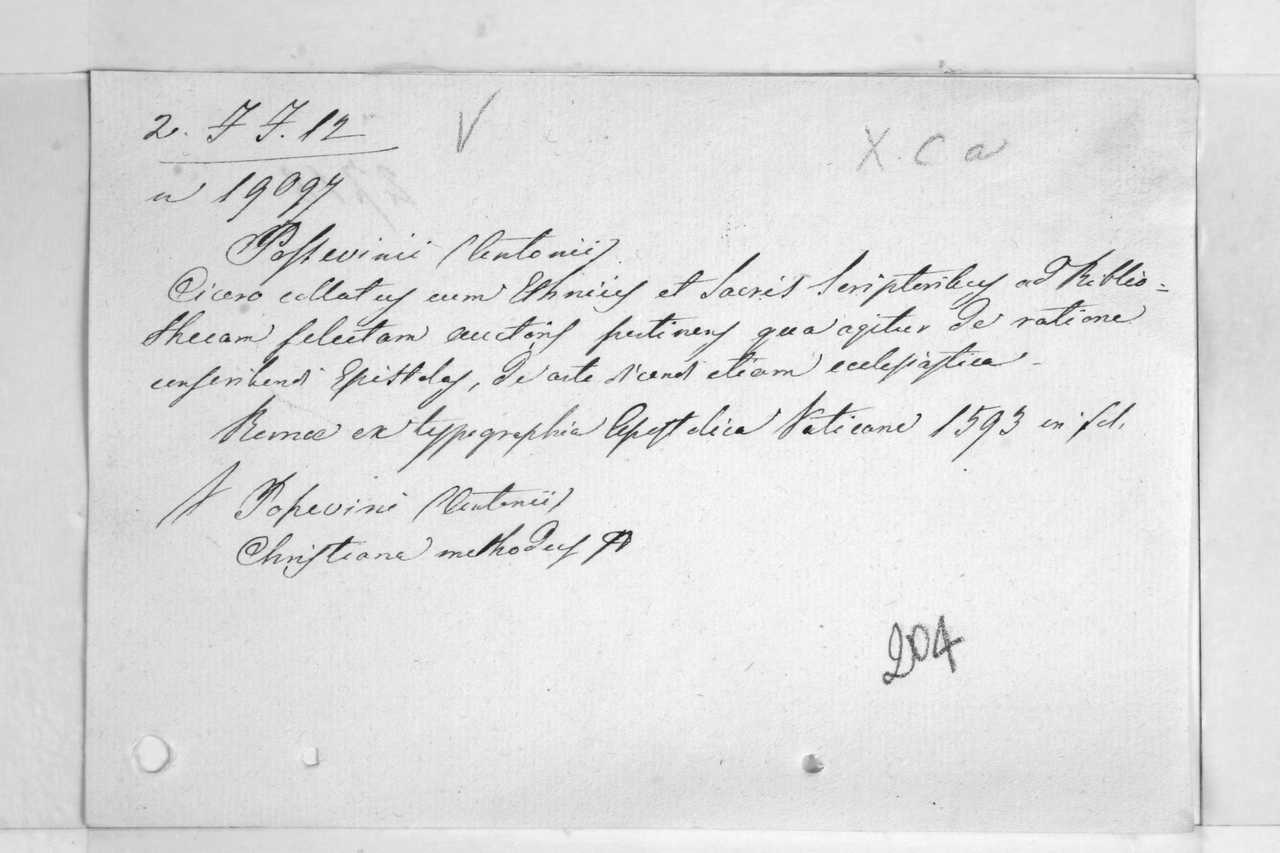 2. J J. 12
V
X. C a
n 19097
Possevinii (Antonii)
Cicero collatus cum Ethnicis et Sacris Scriptoribus ad Biblio=
thecam selectam auctoris pertinens qua agitur de ratione
conscribendi Epistolas, de arte dicendi etiam ecclesiastica
Romae ex typographia Apostolica Vaticana 1593 in fol.
Possevini (Antonii)
Christiana methodus
204